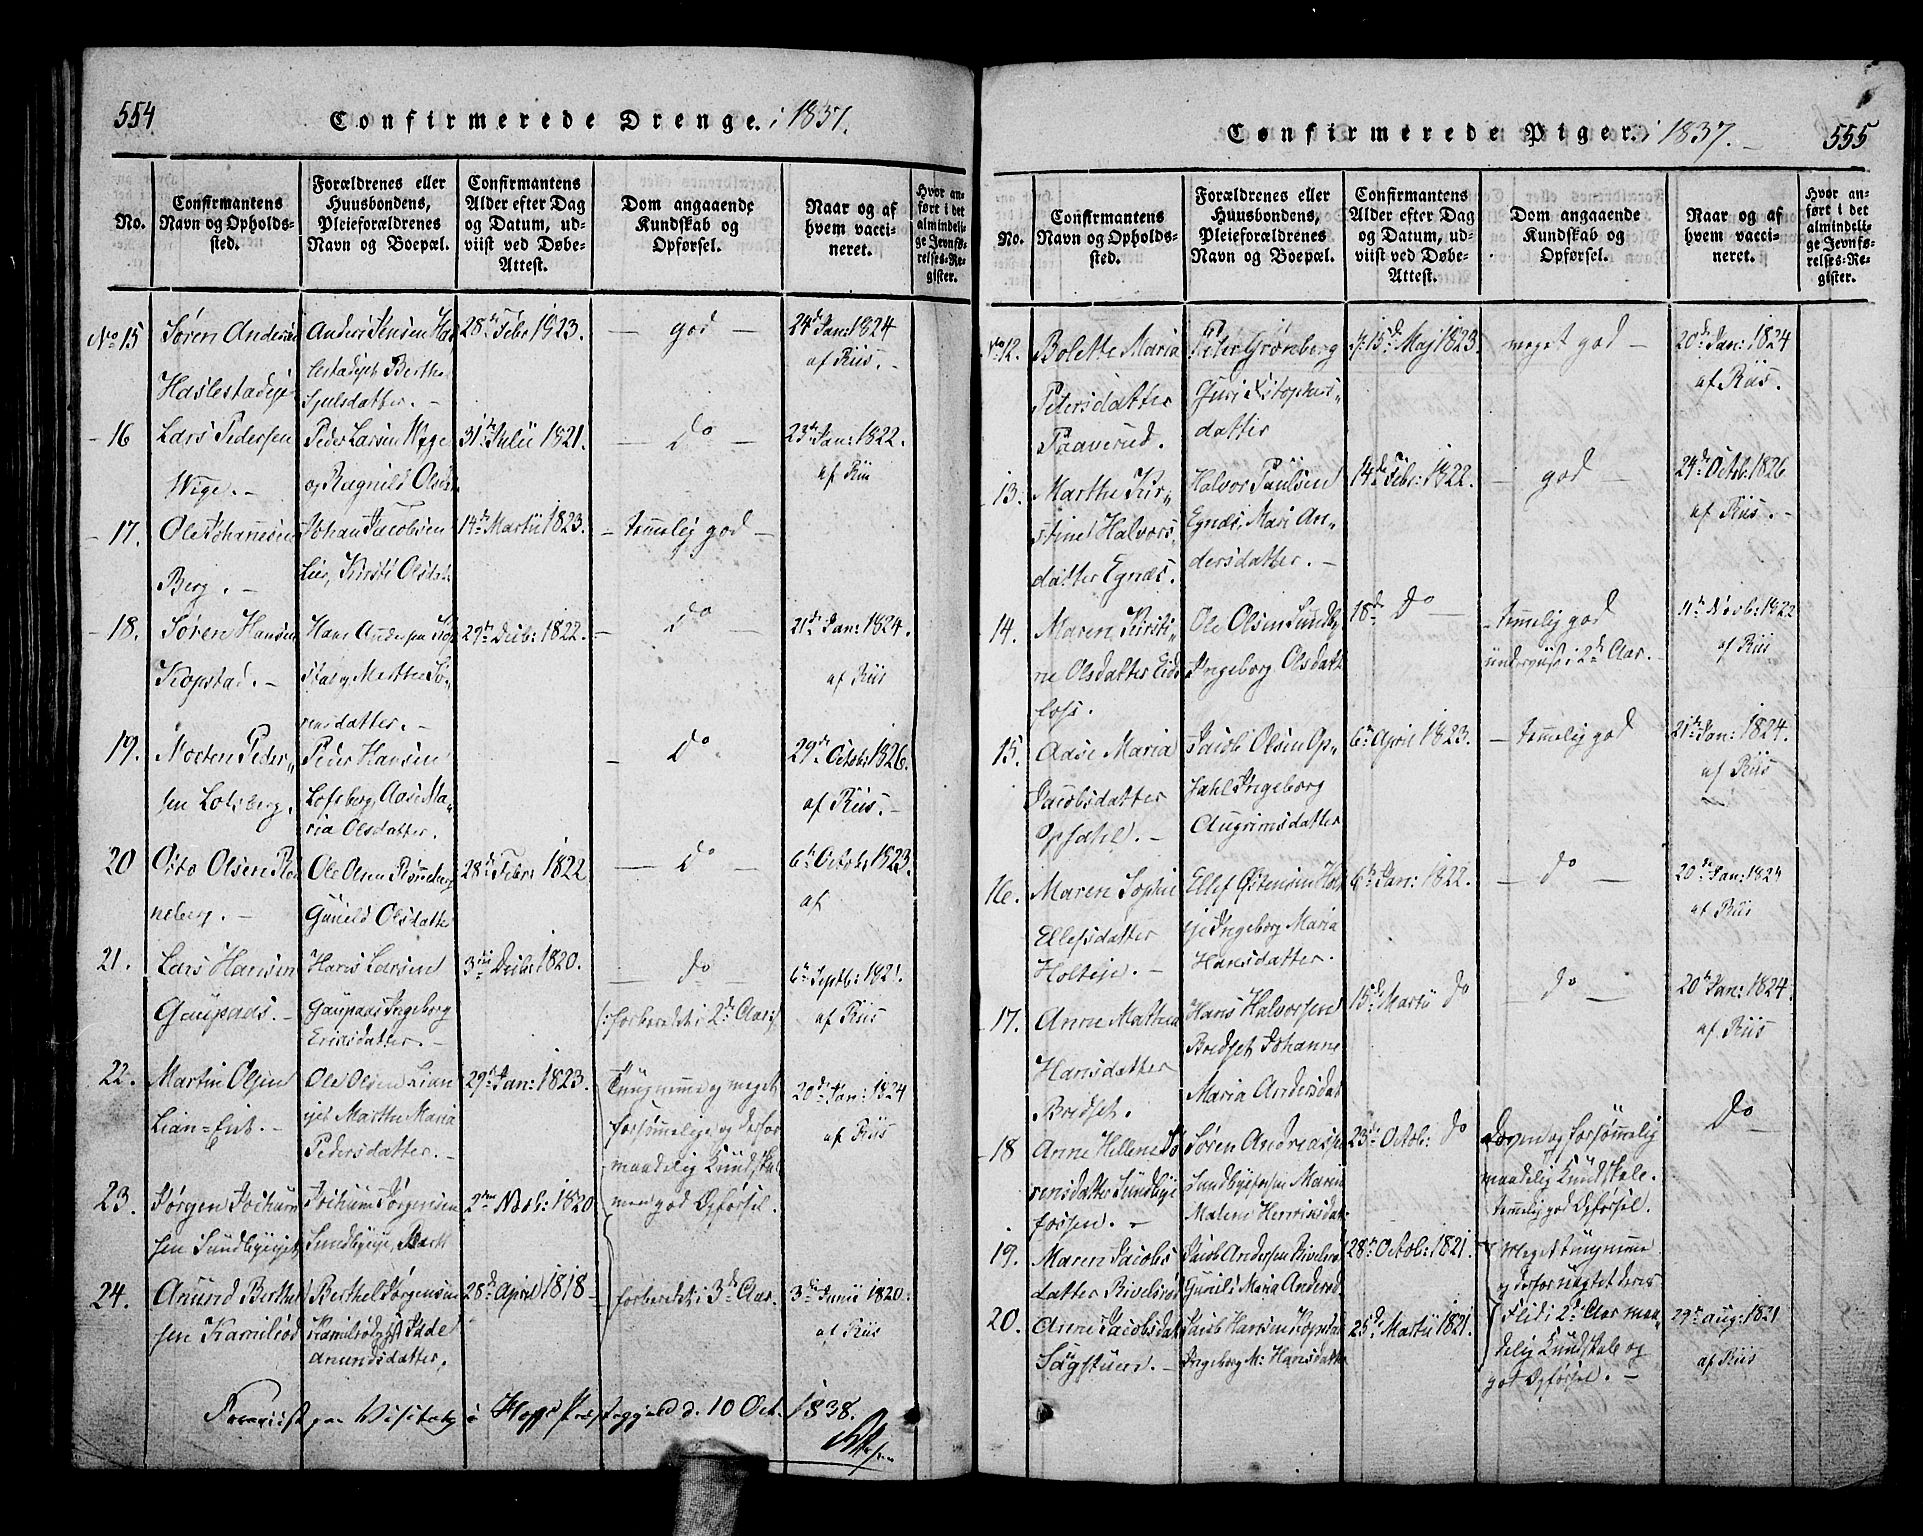 554
Confirmerede Drenge. i 1837.
No.
Confirmantens
Navn og Opholds-
sted.
Forældrenes eller
Huusbondens,
Pleieforældrenes
Navn og Boepæl.
Confirmantens
Alder efter Dag
og Datum, ud-
viist ved Døbe-
Attest.
Dom angaaende
Kundskab og
Opførsel.
Naar og af
hvem vacci-
neret.
Hvor an-
ført i det
almindeli-
ge Jevnfø-
relses-Re-
gister.
No 15
Søren Anders
Haslestadeje
Anders Jensen Has
lestadejet Berthe
Sjulsdatter. -
28de Febr 1823.
- god -
24de Jan: 1824
af Riis. -
- 16
Lars Pedersen
Wige. -
Peder Larsen Wige
og Ragnild Olsdt
31te Julii 1821.
- do -
23de Jan: 1822.
af Riis
- 17.
Ole Johannesen
Berg. -
Johan Jacobsen
Lier, Kirsti Olsdat
14de Martii 1823.
- temmelig god -
- 18.
Søren Hansen
Kopstad. -
Hans Andersen Kop
stad, Merthe Sø-
rensdatter. -
29de Decb: 1822.
- do -
21de Jan: 1824.
af Riis
19.
Morten Peder-
sen Lofsberg.
Peder Hansen
Lofsberg, Aase Ma-
ria Olsdatter.
- do
29de Octob: 1826.
af Riis. -
20
Otto Olsen Røn
neberg. -
Ole Olsen Rønneberg
Gunild Olsdatter
28de Febr: 1822
- do -
6te Octob: 1823.
af
21.
Lars Hansen
Gaupaas. -
Hans Larsen
Gaupaas Ingeborg
Ericsdatter. -
3die Decbr 1820.
- do -
/: forberedt i 2de Aar :/
6te Septb: 1821.
af Riis
22.
Martin Olsen
Lian-Eie. -
Ole Olsen Lian
ejet Marthe Maria
Pedersdatter. -
29de Jan: 1823.
Tungnemme og meget
forsømmelig, og derfor
maadelig Kundskab
men god Opførsel.
20de Jan: 1824
af Riis
23.
Jørgen Jochum
sen Sundbyejet
Jochum Jørgensen
Sundbyeje,
2den Novb: 1820
24.
Anund Berthel
sen Kamilrød
Berthel Jørgensen
Kamilrødejet
Anundsdatter.
28de April 1818 -
forberedt i 3de Aar.
3die Junii 1820.
af Riis
Foreviist paa Visitats i Hoffs Præstegjeld d. 10 Oct. 1838.
Confirmerede Piger. i 1837. -
555
No.
Confirmantens
Navn og Opholds-
sted.
Forældrenes eller
Huusbondens,
Pleieforældrenes
Navn og Boepæl.
Confirmantens
Alder efter Dag
og Datum, ud-
viist ved Døbe-
Attest.
Dom angaaende
Kundskab og
Opførsel.
Naar og af
hvem vacci-
neret.
Hvor an-
ført i det
almindeli-
ge Jevnfø-
relses-Re-
gister.
No 12.
Bolette Maria
Petersdatter
Paaverud.
Peter Grønberg
Guri Kistophers-
datter
15de Maj 1823.
meget god -
20de Jan: 1824
af Riis.
13.
Marthe Kir-
stine Halvors-
datter Egnæs.
Halvor Paulsen
Egnæs, Mari An-
dersdatter. -
14de Febr: 1822.
- god -
24de Octob: 1826
af Riis. -
14.
Maren Kirsti-
ne Olsdatter Eids
foss.
Ole Olsen Sundby
Ingeborg Olsdatt
18de do -
- temmelig god
underviist i 2de Aar. -
11te Novb: 1822
af Riis
15.
Aase Maria
Jacobsdatter
Opsahl. -
Jacob Olsen Op-
sahl Ingeborg
Augrimsdatter
6te April 1823.
- temmelig god
21de Jan: 1824.
af Riis
16.
Maren Sophie
Ellefsdatter
Holteje. -
Ellef Østensen Holt
eje Ingeborg Maria
Hansdatter.
6te Jan: 1822.
- do -
20de Jan: 1824
af Riis
- 17.
Anne Mathea
Hansdatter
Bredset.
Hans Halvorsen
Bredset, Johanne
Maria Andersdat
15de Martii do
- do -
20de Jan: 1824.
af Riis
- 18
Anne Hellene Sø
rensdatter Sundbyeje
fossen. -
Søren Andreasen
Sundbyefossen Maria
Malene Henriksdat
23de Octob: do
Doven og forsømmelig
maadelig Kundskab.
temmelig god Opførsel.
do -
19.
Maren Jacobs
datter Rivelsrød
Jacob Andersen Rivelsrød
Gunild Maria Andersd.
28de Octob: 1821.
Meget tungnemme
og derfor uagtet deres
20.
Anne Jacobsdat
Sagstuen. -
Jacob Hansen Kopstad
Ingeborg M: Hansdatter
25de Martii 1821.
Flid i 2de Aar maa-
delig Kundskab og
god Opførsel. -
29de Aug: 1821
af Riis